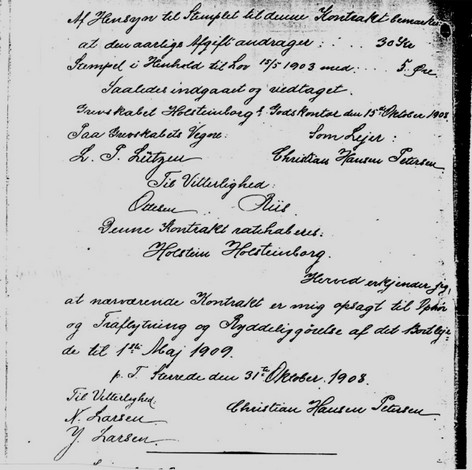 Af Hensyn til Stemplet til denne Kontrakt bemærkes
at den aarlige Afgift andrager : . . . 30 Kr
Stempel i Henhold til Lov 19/5 1903 med : 5 Øre
Saaledes indgaaet og vedtaget.
Grevskabet Holsteinborg's Godskontor den 15de Oktober 1903
Paa Grevskabets Vegne: Som Lejer:
L. P. Lützen Christian Hansen Petersen
Til Vitterlighed:
Ottesen Riis.
Denne Kontrakt ratihaberes:
Holstein Holsteinborg.
Herved erkjender jeg,
at nærværende Kontrakt er mig opsagt til Ophør
og Fraflytning og Ryddeliggörelse af det Bortleje-
de til 1ste Maj 1909.
p. T. den 31te Oktober 1908.
Til Vitterlighed: Christian Hansen Petersen
N. Larsen
Y. Larsen